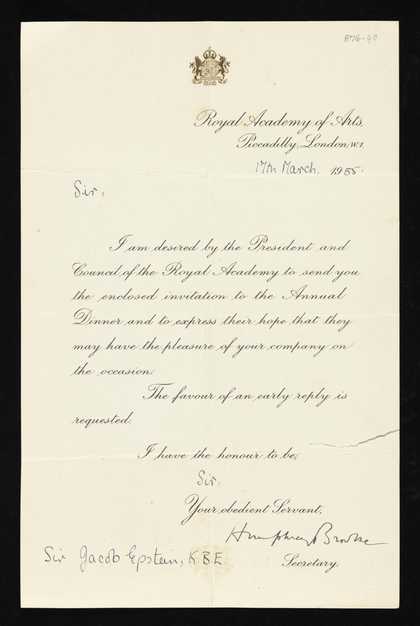 876-90
Royal Academy of Arts,
Piccadilly, London, W.1.
17th March. 1955.
Sir,
I am desired by the President and
Council of the Royal Academy to send you
the enclosed invitation to the Annual
Dinner and to express their hope that they
may have the pleasure of your company on
the occasion.
The favour of an early reply is
requested.
I have the honour to be,
Sir.
Your obedient Servant,
Humphrey Brooke
Secretary.
Sir Jacob Epstein, KBE